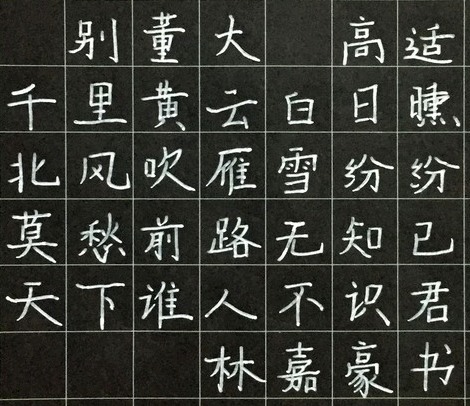 别董大 高适
千里黄云白日曛
北风吹雁雪纷纷
莫愁前路无知己
天下谁人不识君
林嘉豪书